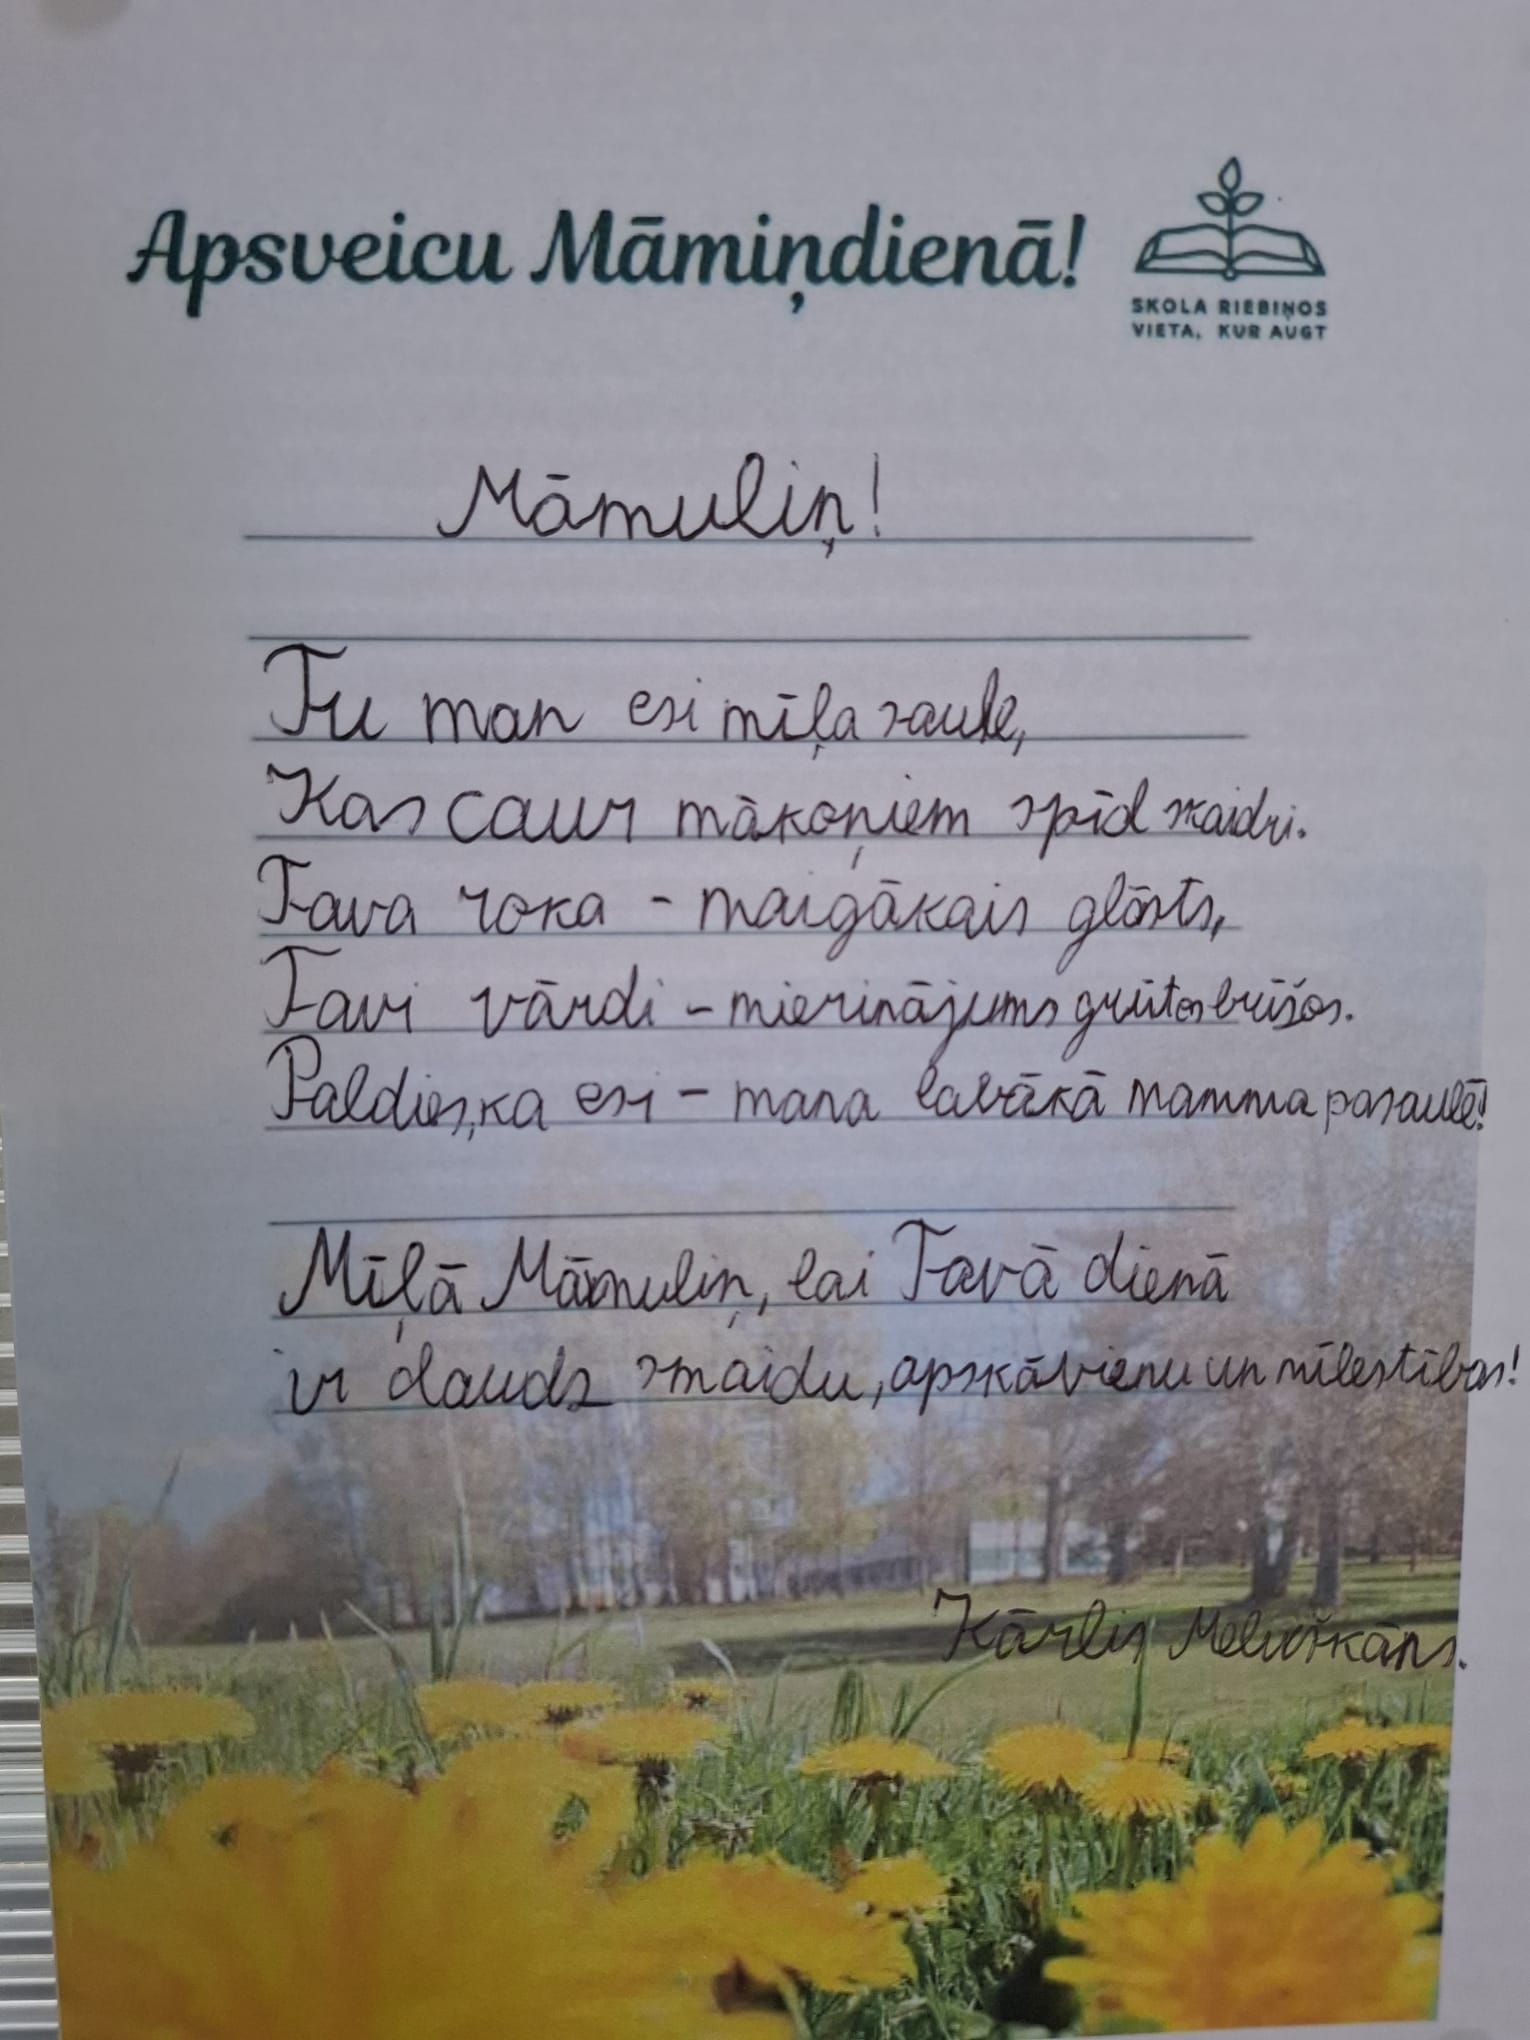 Apsveicu Māmiņdienā!
SKOLA RIEBIŅOS
VIETA, KUR AUGT
Māmuliņ!
Tu man esi mīļa saule,
Kas caur mākoņiem spīd skaidri.
Tava roka - maigākais glāsts,
Tavi vārdi - mierinājums grūtos brīžos.
Paldies, ka esi - mana labākā mamma pasaulē!
Mīļā Māmuliņ, lai Tavā dienā
ir daudz smaidu, apskāvienu un mīlestības!
Kārlis